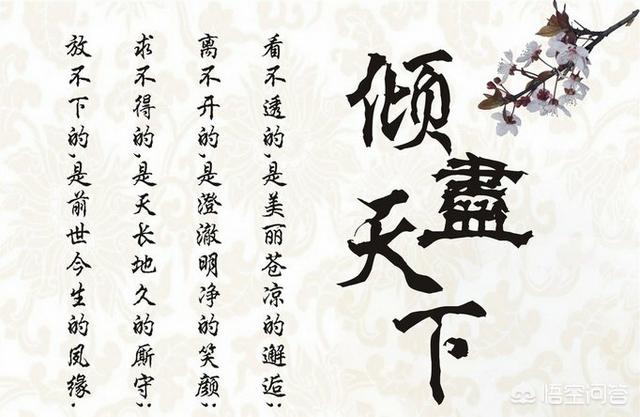 倾盡天下
看不透的,是美丽苍凉的邂逅;
离不开的,是澄澈明净的笑颜;
求不得的,是天长地久的厮守;
放不下的,是前世今生的夙缘.
悟空问答